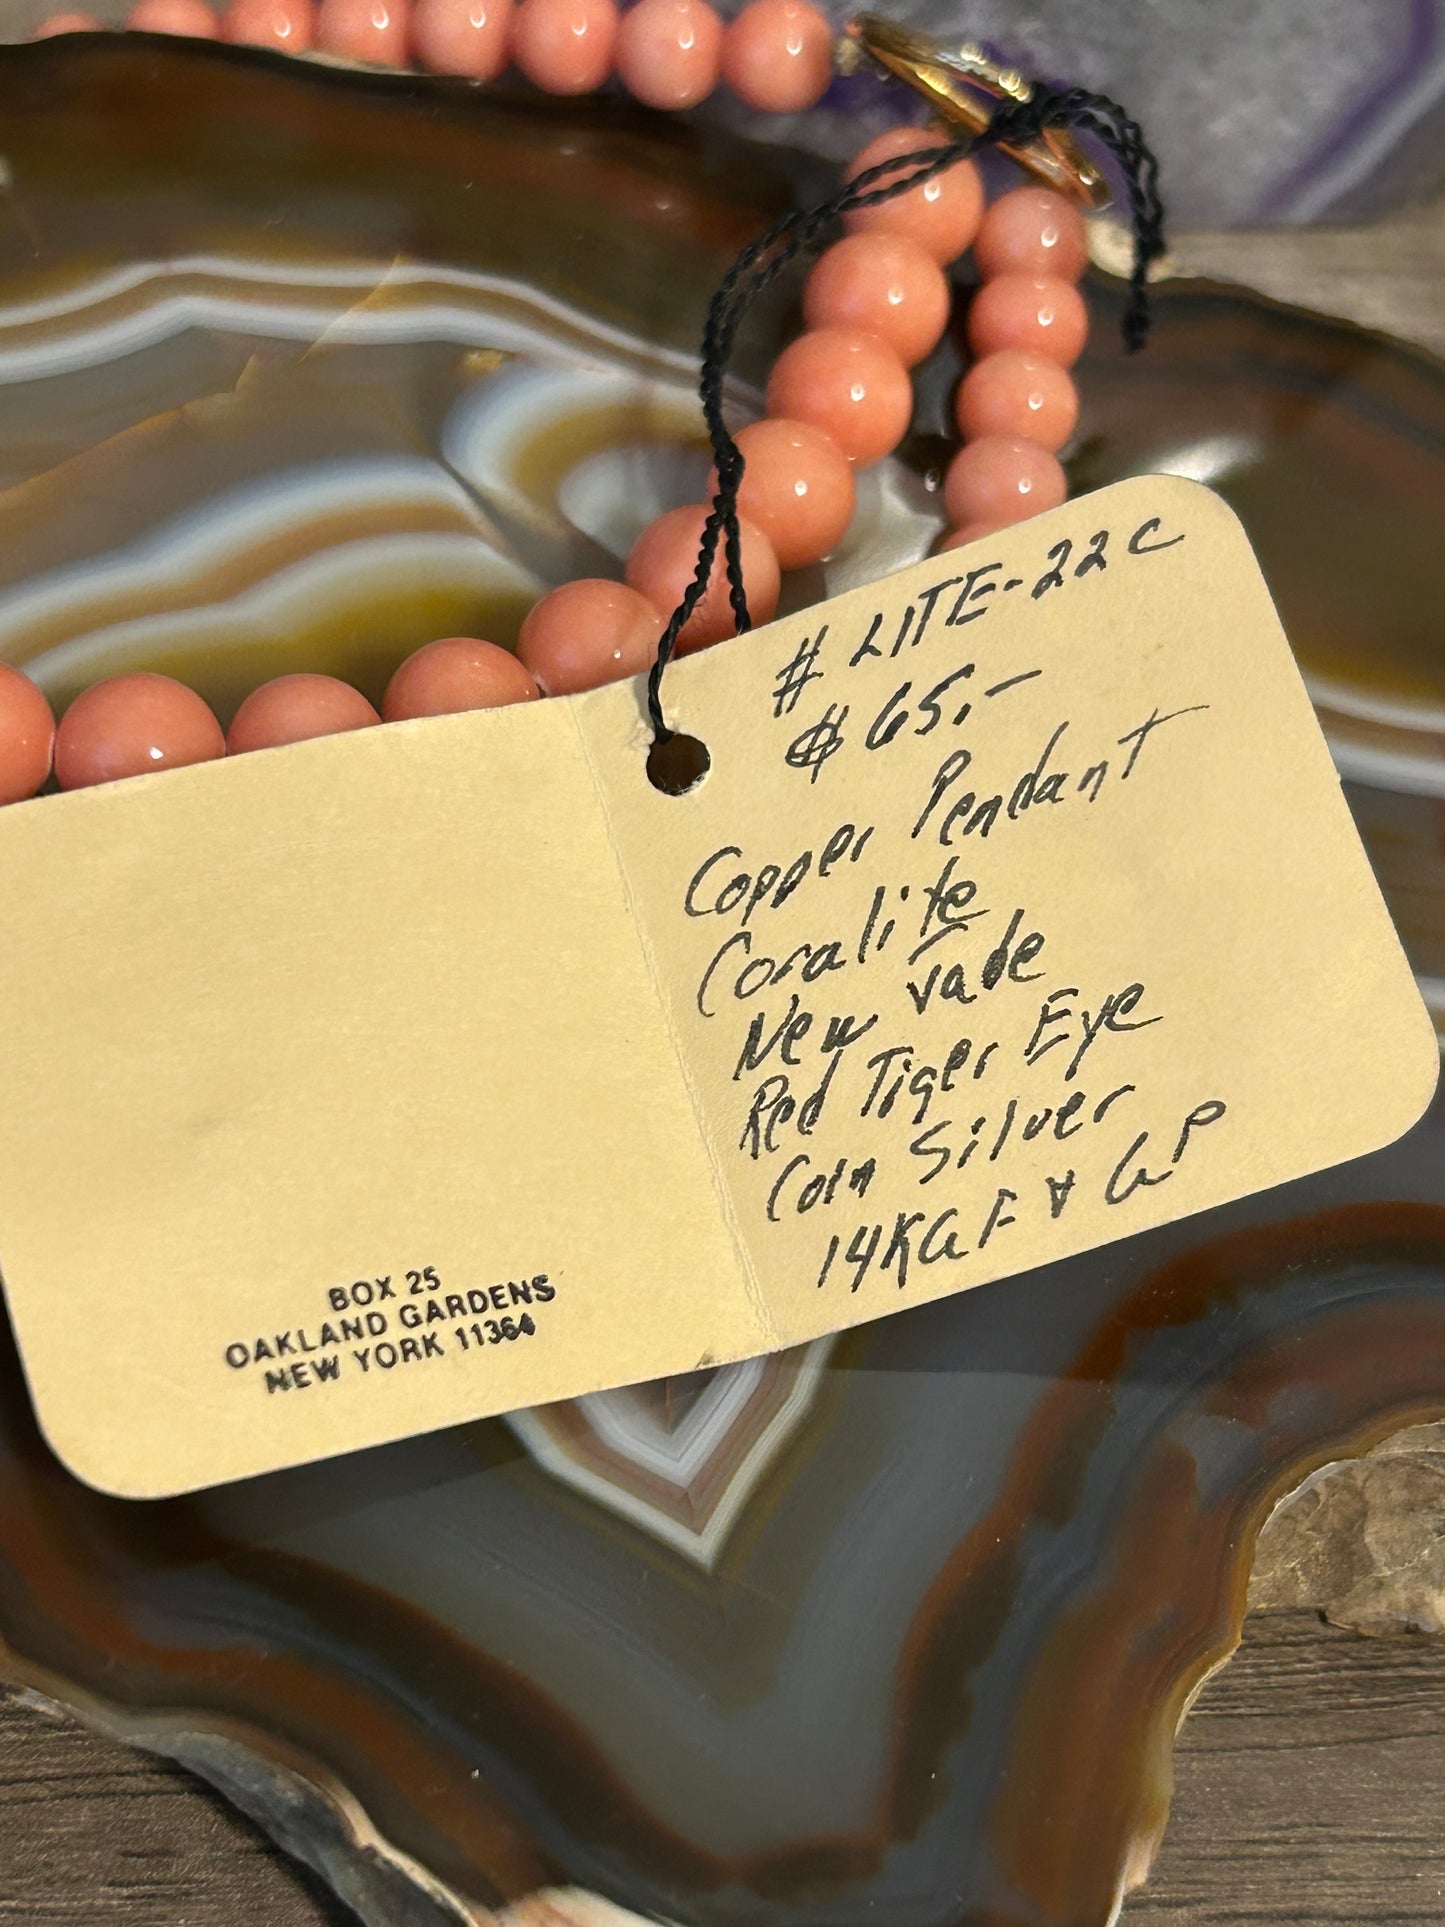 BOX 25
OAKLAND GARDENS
NEW YORK 11364
# LITE-22C
$65.-
Copper Pendant
Coralite
New Jade
Red Tiger Eye
Coin Silver
14KGF & GP